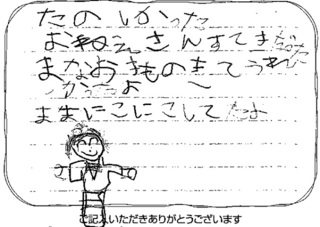 たのしかった
おねえさんすてきだった
まなおきものきてうれし
かったよ
ままにこにこしてたよ
ご記入いただきありがとうございます